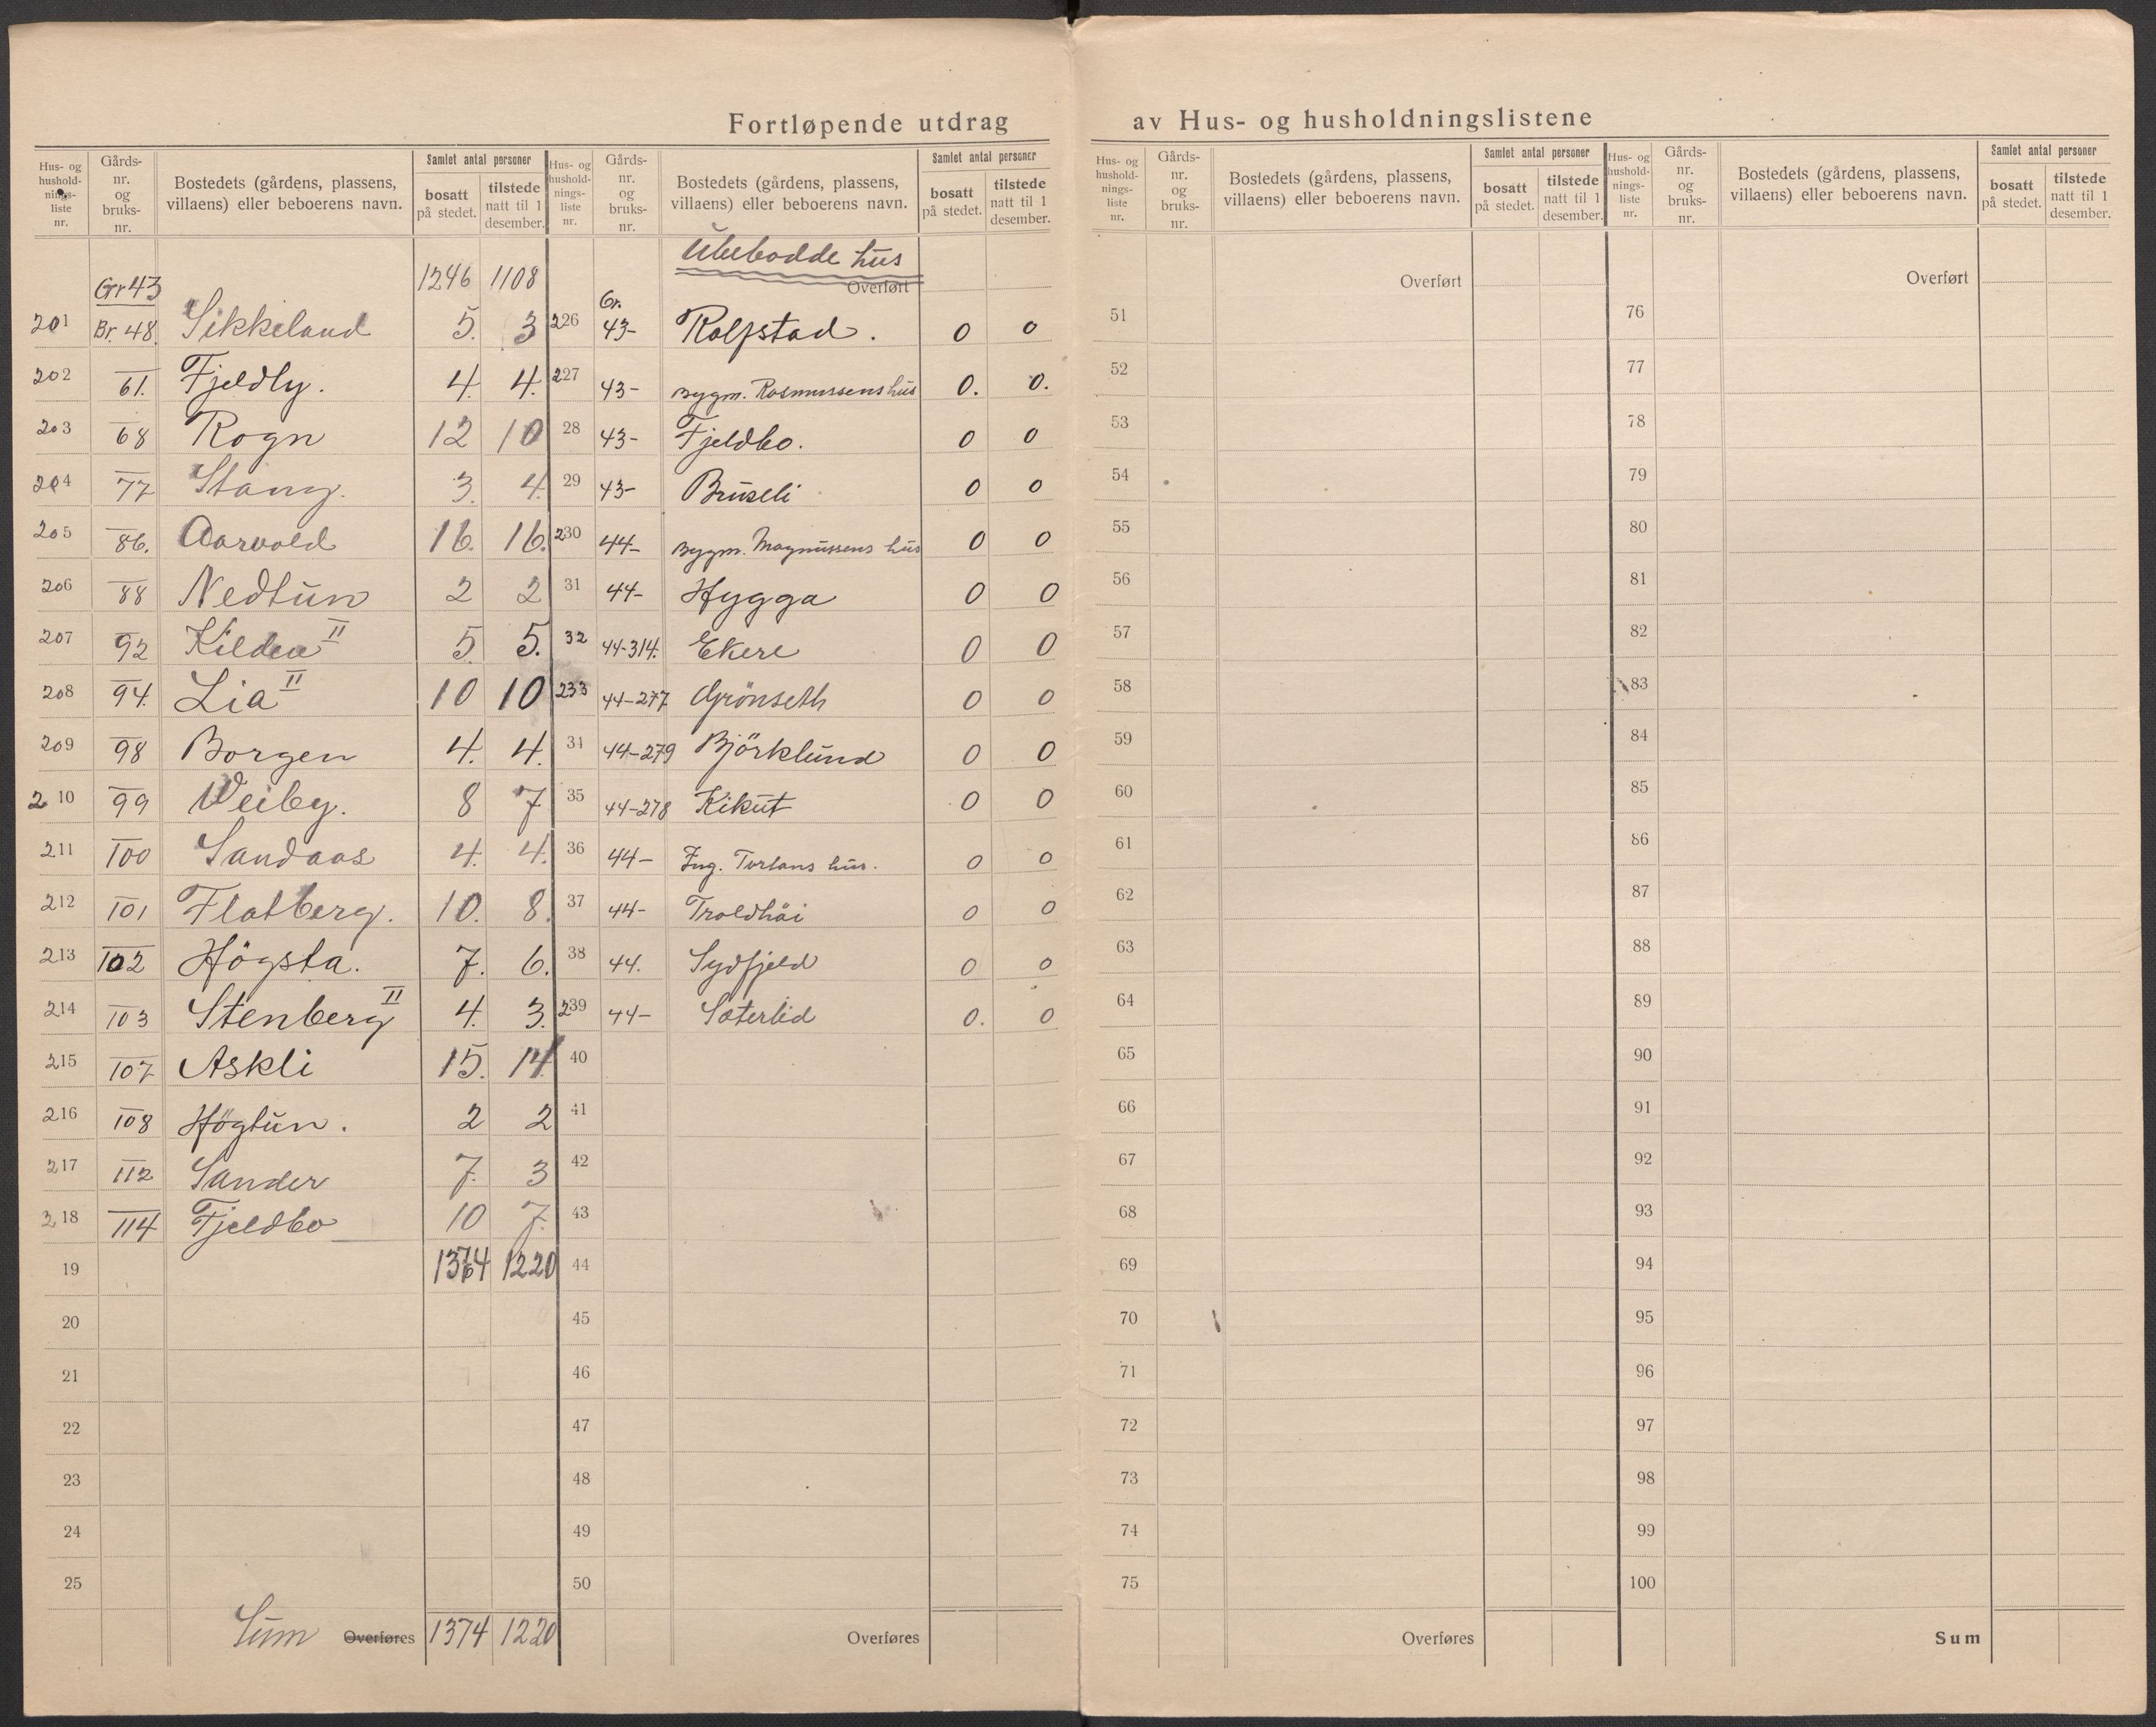 Fortløpende utdrag av Hus- og husholdningslistene
Hus- og husholdnings-liste nr. | Gårds-nr. og bruks-nr. | Bostedets (gårdens, plassens, villaens) eller beboerens navn. | Samlet antal personer | bosatt på stedet. | tilstede natt til 1 desember.
Gr 43 | 1246 | 1108
201 | Br. 48. | Sikkeland | 5. | 3
202 | 61. | Fjeldly. | 4. | 4.
203 | 68 | Rogn | 12 | 10
204 | 77 | Stang. | 3. | 4.
205 | 86. | Aarvold | 16. | 16.
206 | 88 | Nedtun | 2 | 2
207 | 92 | Kildea II | 5. | 5.
208 | 94. | Lia II | 10 | 10
209 | 98 | Borgen | 4. | 4.
210 | 99 | Veiby. | 8 | 7
211 | 100 | Sandaas | 4. | 4.
212 | 101 | Flatberg. | 10. | 8.
213 | 102 | Högsta. | 7. | 6.
214 | 103 | Stenberg II | 4. | 3.
215 | 107 | Askli | 15. | 14
216 | 108 | Högtun. | 2 | 2
217 | 112 | Sander | 7. | 3
218 | 114 | Fjeldbo | 10 | 7.
19 | 1374 | 1220
20
21
22
23
24
25
Sum Overføres | 1374 | 1220
Hus- og husholdnings-liste nr. | Gårds-nr. og bruks-nr. | Bostedets (gårdens, plassens, villaens) eller beboerens navn. | Samlet antal personer | bosatt på stedet. | tilstede natt til 1 desember.
Ubebodde hus
Overført
226 | Gr. 43- | Rolfstad. | 0 | 0
227 | 43- | Bygm. Rasmussens hus | 0. | 0.
28 | 43- | Fjeldbo. | 0 | 0
29 | 43- | Bruseli | 0 | 0
230 | 44- | Bygm. Magnussens hus | 0 | 0
31 | 44- | Hygga | 0 | 0
32 | 44-314. | Ekere | 0 | 0
233 | 44-277 | Grönseth | 0 | 0
34 | 44-279 | Björklund | 0 | 0
35 | 44-278 | Kikut | 0 | 0
36 | 44- | Ing. hus. | 0 | 0
37 | 44- | Troldhöi | 0 | 0
38 | 44. | Sydfjeld | 0 | 0
239 | 44- | Sæterlid | 0. | 0
40
41
42
43
44
45
46
47
48
49
50
Overføres
Hus- og husholdnings-liste nr. | Gårds-nr. og bruks-nr. | Bostedets (gårdens, plassens, villaens) eller beboerens navn. | Samlet antal personer | bosatt på stedet. | tilstede natt til 1 desember.
Overført
51
52
53
54
55
56
57
58
59
60
61
62
63
64
65
66
67
68
69
70
71
72
73
74
75
Overføres
Hus- og husholdnings-liste nr. | Gårds-nr. og bruks-nr. | Bostedets (gårdens, plassens, villaens) eller beboerens navn. | Samlet antal personer | bosatt på stedet. | tilstede natt til 1 desember.
Overført
76
77
78
79
80
81
82
83
84
85
86
87
88
89
90
91
92
93
94
95
96
97
98
99
100
Sum